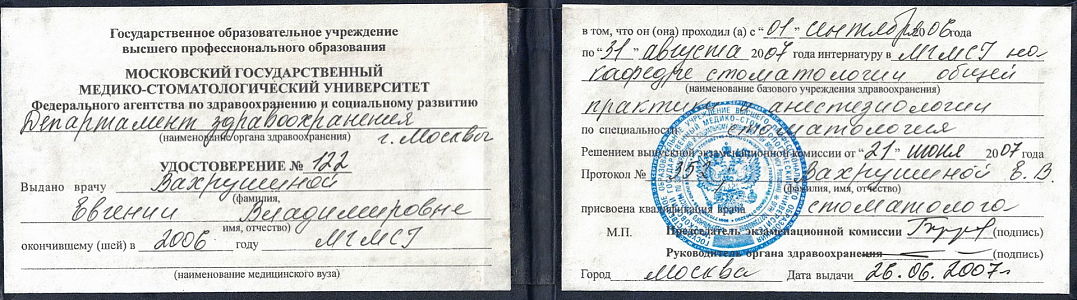 Государственное образовательное учреждение
высшего профессионального образования
МОСКОВСКИЙ ГОСУДАРСТВЕННЫЙ
МЕДИКО-СТОМАТОЛОГИЧЕСКИЙ УНИВЕРСИТЕТ
Федерального агентства по здравоохранению и социальному развитию
Департамент здравоохранения
(наименование органа здравоохранения) г. Москвы
УДОСТОВЕРЕНИЕ № 122
Выдано врачу Вахрушиной
(фамилия,
Евгении Владимировне
имя, отчество)
окончившему (шей) в 2006 году МГМСУ
(наименование медицинского вуза)
в том, что он (она) проходил (а) с "01" сентября 2006 года
по "31" августа 2007 года интернатуру в МГМСУ на
кафедре стоматологии общей
(наименование базового учреждения здравоохранения)
практики и анестезиологии
по специальности стоматология
Решением выпускной экзаменационной комиссии от "21" июня 2007 года
Протокол № 352 Вахрушиной Е. В.
(фамилия, имя, отчество)
присвоена квалификация врача стоматолога
М.П. Председатель экзаменационной комиссии (подпись)
Руководитель органа здравоохранения (подпись)
Город Москва Дата выдачи 26.06.2007г